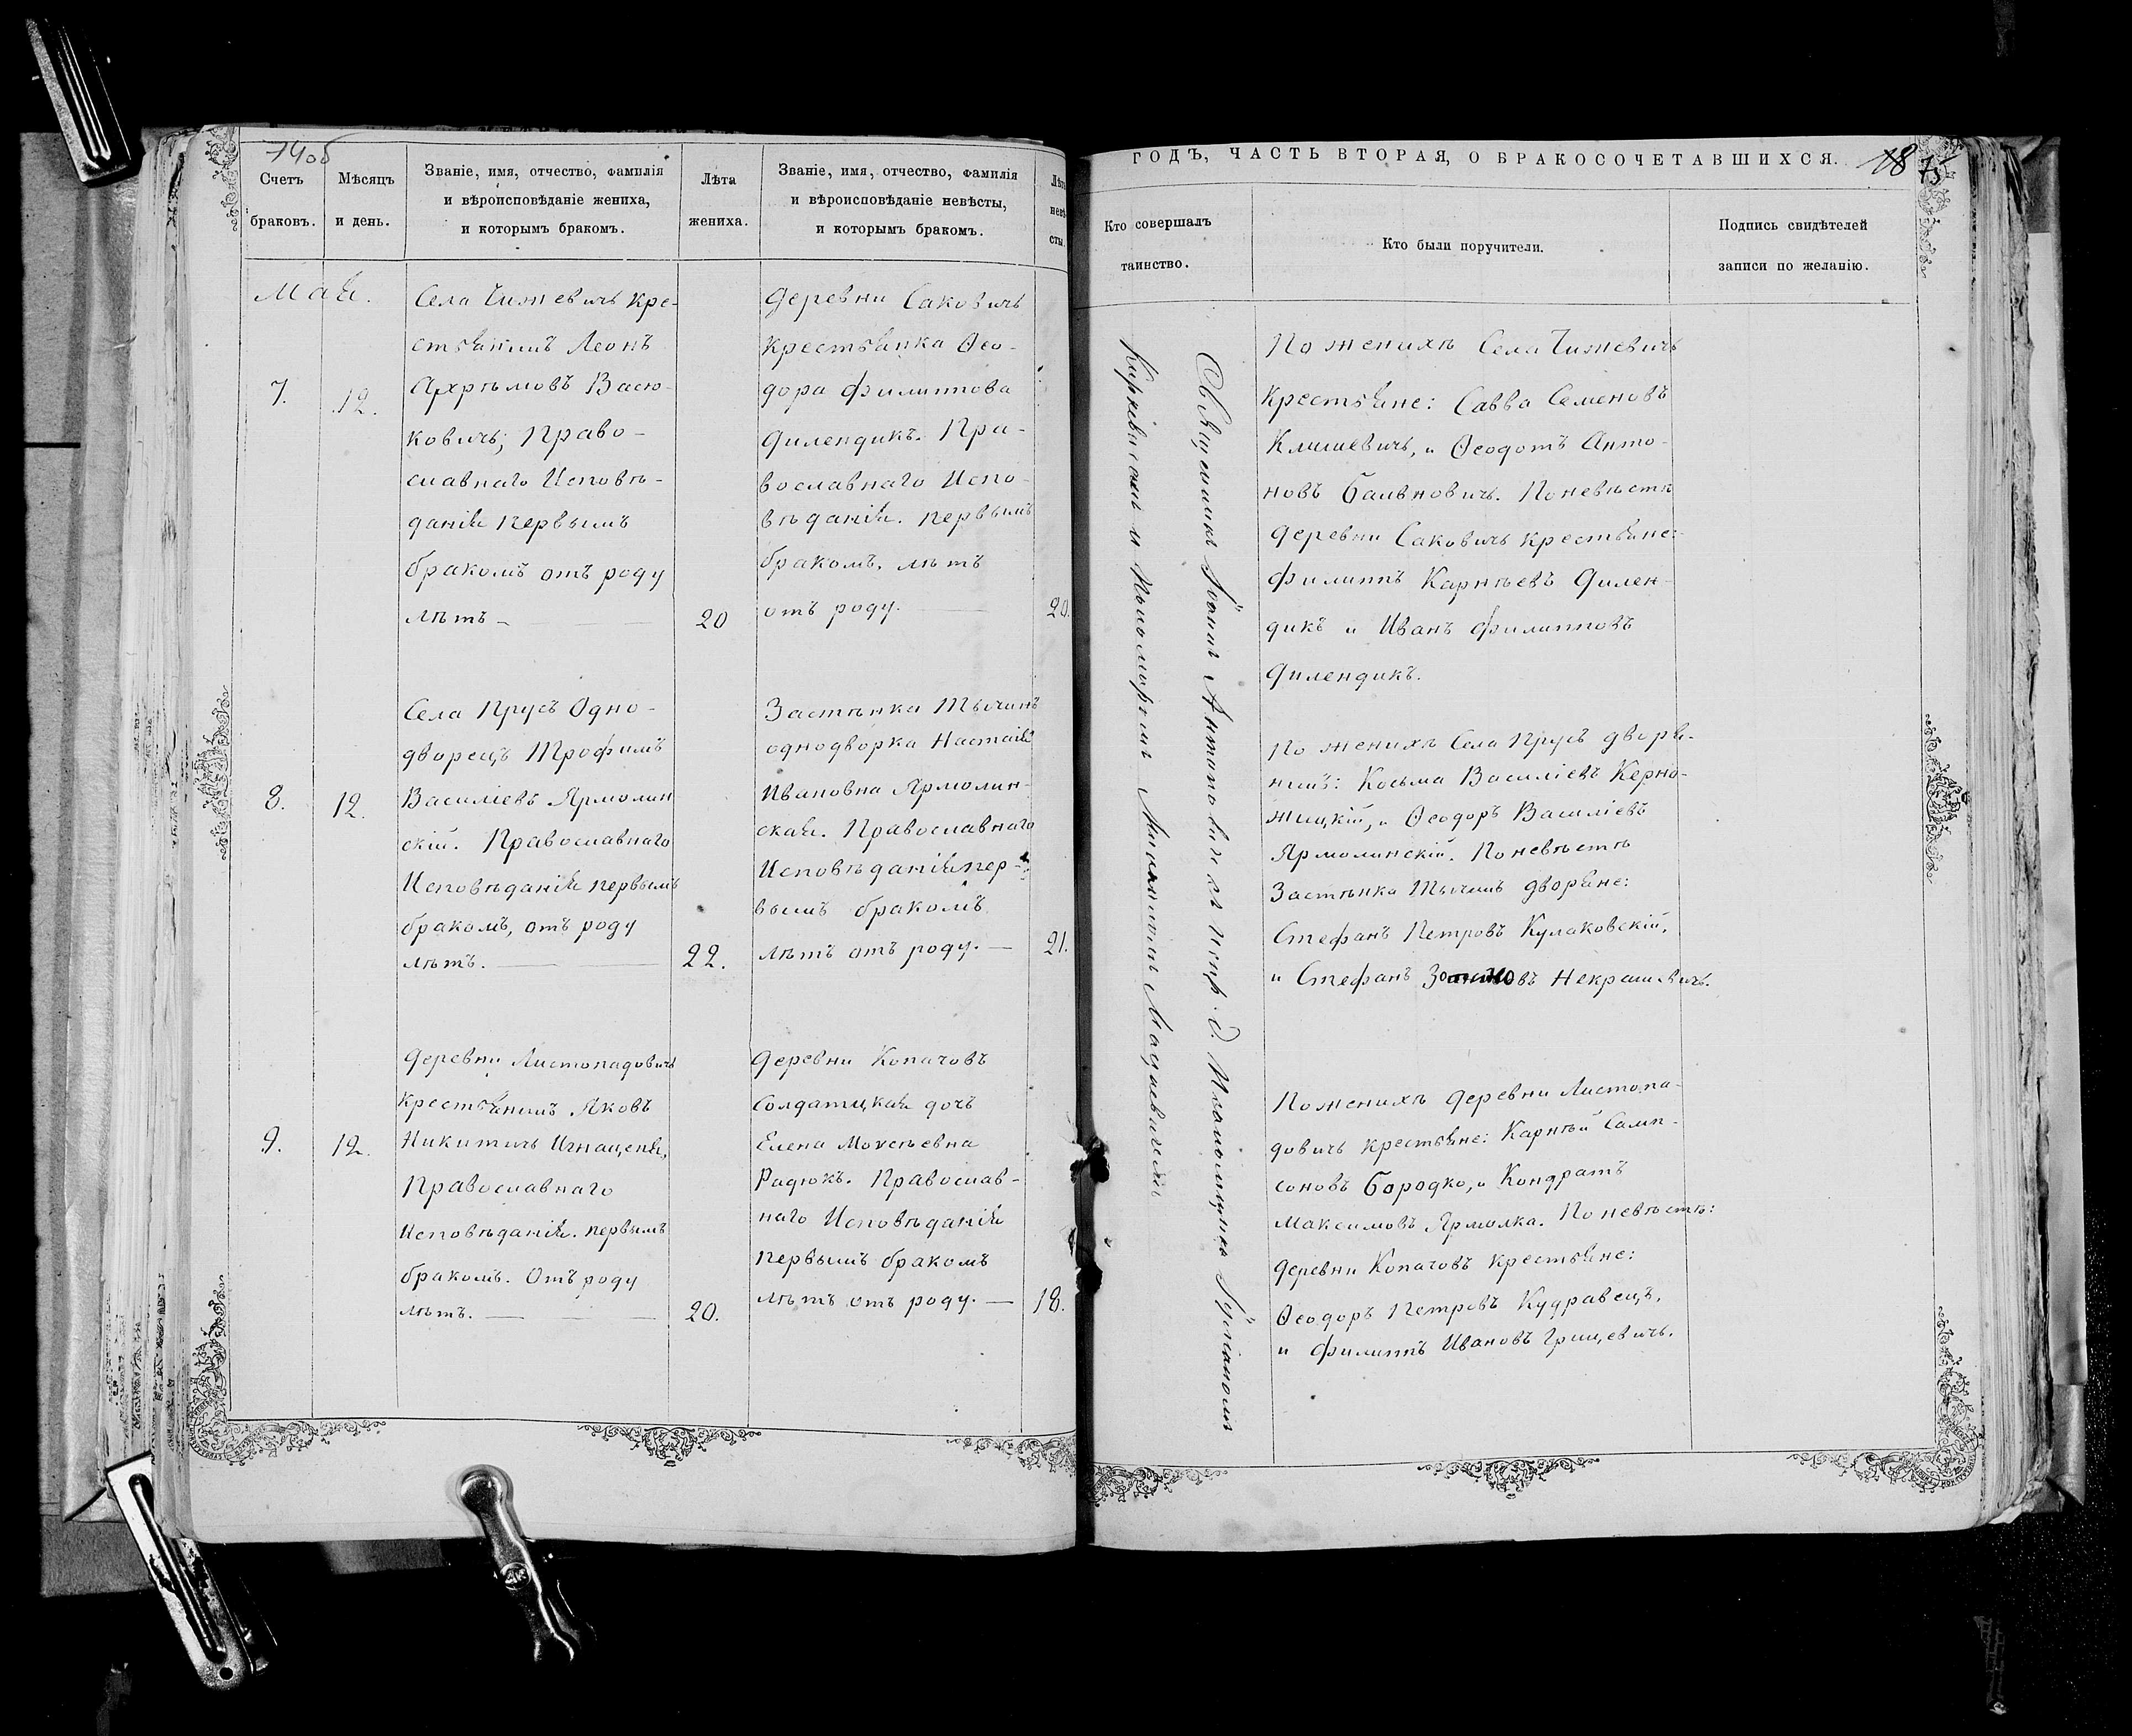 74об
Счетъ
браковъ.
Мѣсяцъ
и день.
Званіе, имя, отчество, фамилія
и вѣроисповѣданіе жениха,
и которымъ бракомъ.
Лѣта
жениха.
Званіе, имя, отчество, фамилія
и вѣроисповѣданіе невѣсты,
и которымъ бракомъ.
Лѣта
невѣ
сты.
Мая.
7.
12.
Села Чижевичъ кре-
стьянинъ Леонъ
Васю-
ковичъ; Право-
славнаго Исповѣ-
данія первымъ
бракомъ отъ роду
лѣтъ -
20
деревни Саковичъ
крестьянка Ѳео-
дора Филиппова
Дилендикъ. Пра-
вославнаго Испо-
вѣданія. первымъ
бракомъ, лѣтъ
отъ роду.
20.
8.
12.
Села Прусъ Одно-
дворецъ Трофимъ
Василіевъ Ярмолин
скій. Православнаго
Исповѣданія первымъ
бракомъ, отъ роду
лѣтъ.
22.
Застѣнка Тычинъ
однодворка Настасія
Ивановна Ярмолин-
ская. Православнаго
Исповѣданія пер-
вымъ бракомъ
лѣтъ отъ роду. —
21.
9.
12.
деревни Листопадовичъ
крестьянинъ Яковъ
Никитичъ Игнаценя,
Православнаго
Исповѣданія. первымъ
бракомъ. Отъ роду
лѣтъ.
20.
деревни Копачовъ
Солдатцкая дочь
Елена
Радюкъ. Православ-
наго Исповѣданія
первымъ бракомъ
лѣтъ отъ роду. —
18.
ГОДЪ, ЧАСТЬ ВТОРАЯ, О БРАКОСОЧЕТАВШИХСЯ.
18 75
Кто совершалъ
таинство.
Кто были поручители.
Подпись свидѣтелей
записи по желанію.
Священникъ Іоаннъ съ и. д. Псаломщика
и Пономаремъ Мацкевичемъ
По женихѣ Села Чижевичъ
Крестьяне: Савва Семеновъ
Климевичъ, и Ѳеодотъ Анто-
новъ По невѣстѣ
деревни Саковичъ крестьяне:
Филиппъ Карнѣевъ Дилен-
дикъ и Иванъ Филипповъ
Дилендикъ.
По женихѣ Села Прусъ дворя-
нинъ: Косьма Василіевъ Керно-
жицкій, и Ѳеодоръ Василіевъ
Ярмолинскій. По невѣстѣ
Застѣнка Тычинъ дворяне:
Стефанъ Петровъ Кулаковскій,
и Стефанъ Некрашевичъ.
По женихѣ деревни Листопа-
довичъ крестьяне: Карнѣй Самп-
соновъ Бородко, и Кондратъ
Максимовъ Ярмолка. По невѣстѣ:
деревни Копачовъ крестьяне:
Ѳеодоръ Петровъ Кудравецъ,
и Филиппъ Ивановъ Грицевичъ.